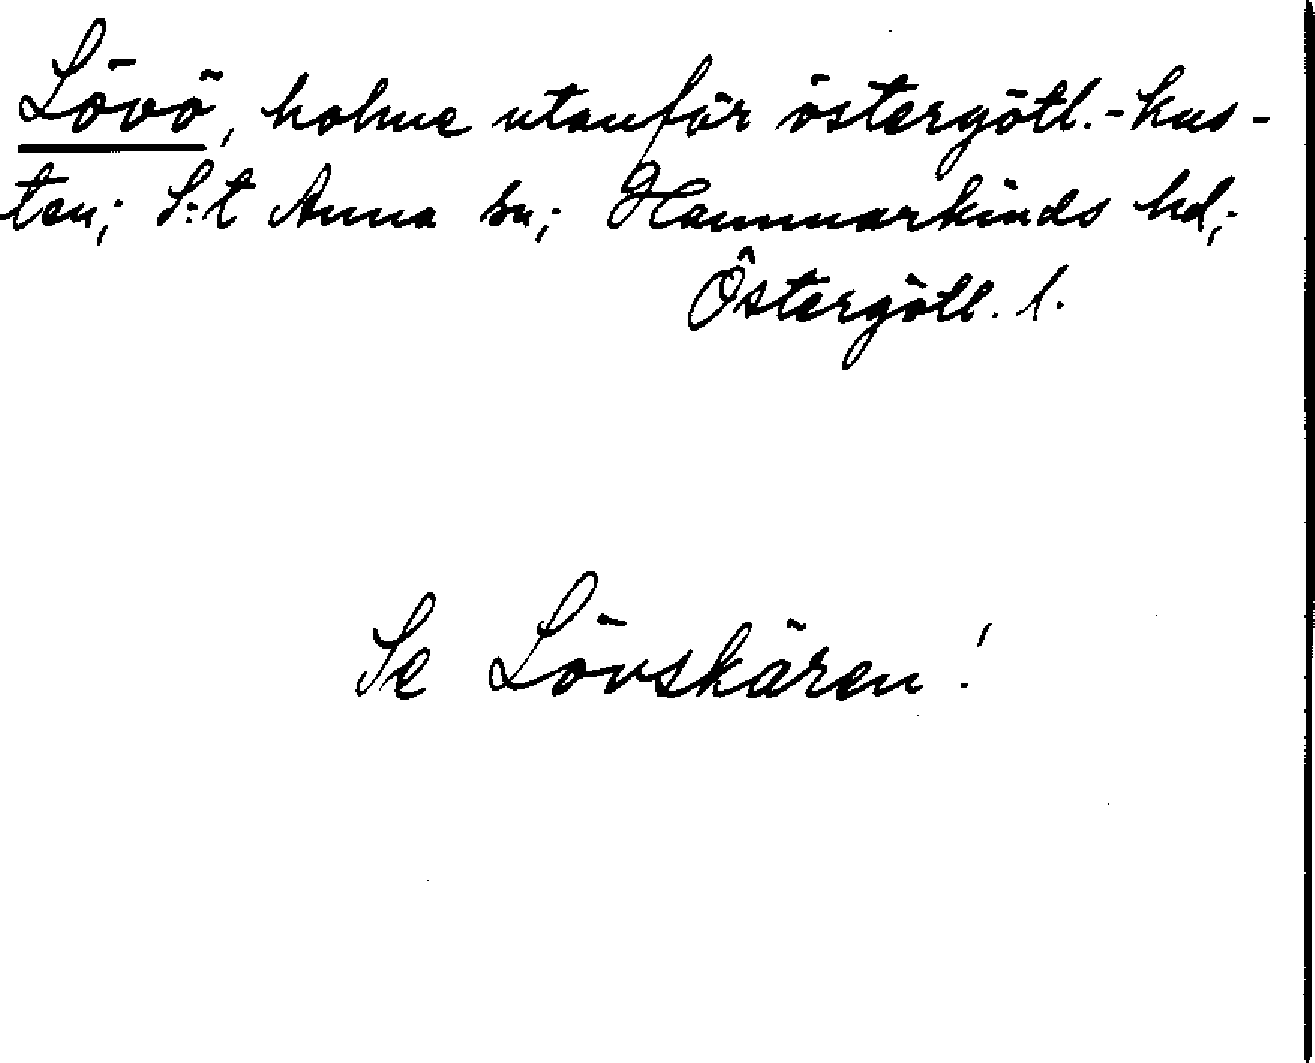 Lövö, holme utanför östergötl.-kus-
ten; S:t Anna sn; Hammarkinds hd;
Östergötl. l.
Se Lövskären!